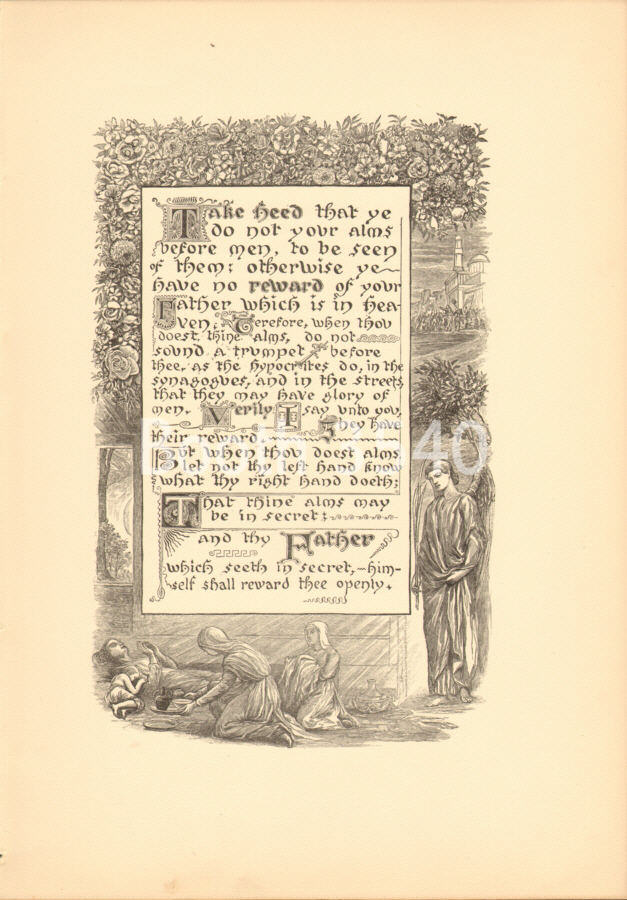 Take heed that ye
do not your alms
before men, to be seen
of them: otherwise ye
have no reward of your
Father which is in hea-
ven. Therefore, when thou
doest thine alms, do not
sound a trumpet before
thee, as the hypocrites do, in the
synagogues, and in the streets,
that they may have glory of
men. Verily I say unto you,
They have
their reward
But when thou doest alms
let not thy left hand know
what thy right hand doeth;
That thine alms may
be in secret;
and thy Father
which seeth in secret, him-
self shall reward thee openly.